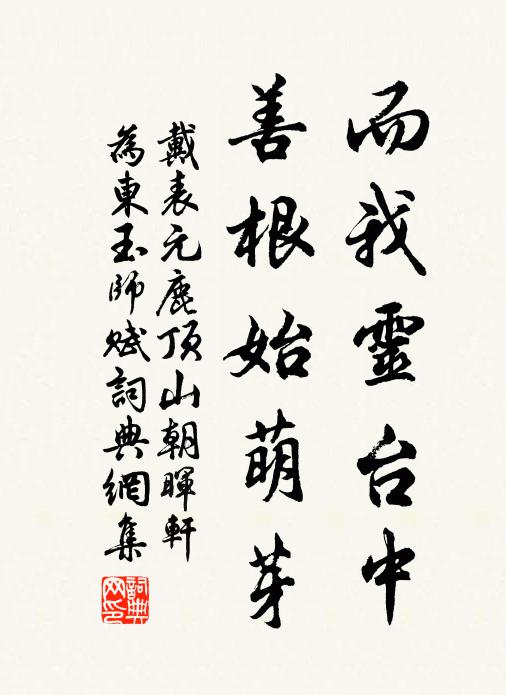 而我靈台中
善根始萌芽
戴表元鹿頂山朝暉軒
為東玉師賦詞典網集
詞典網印